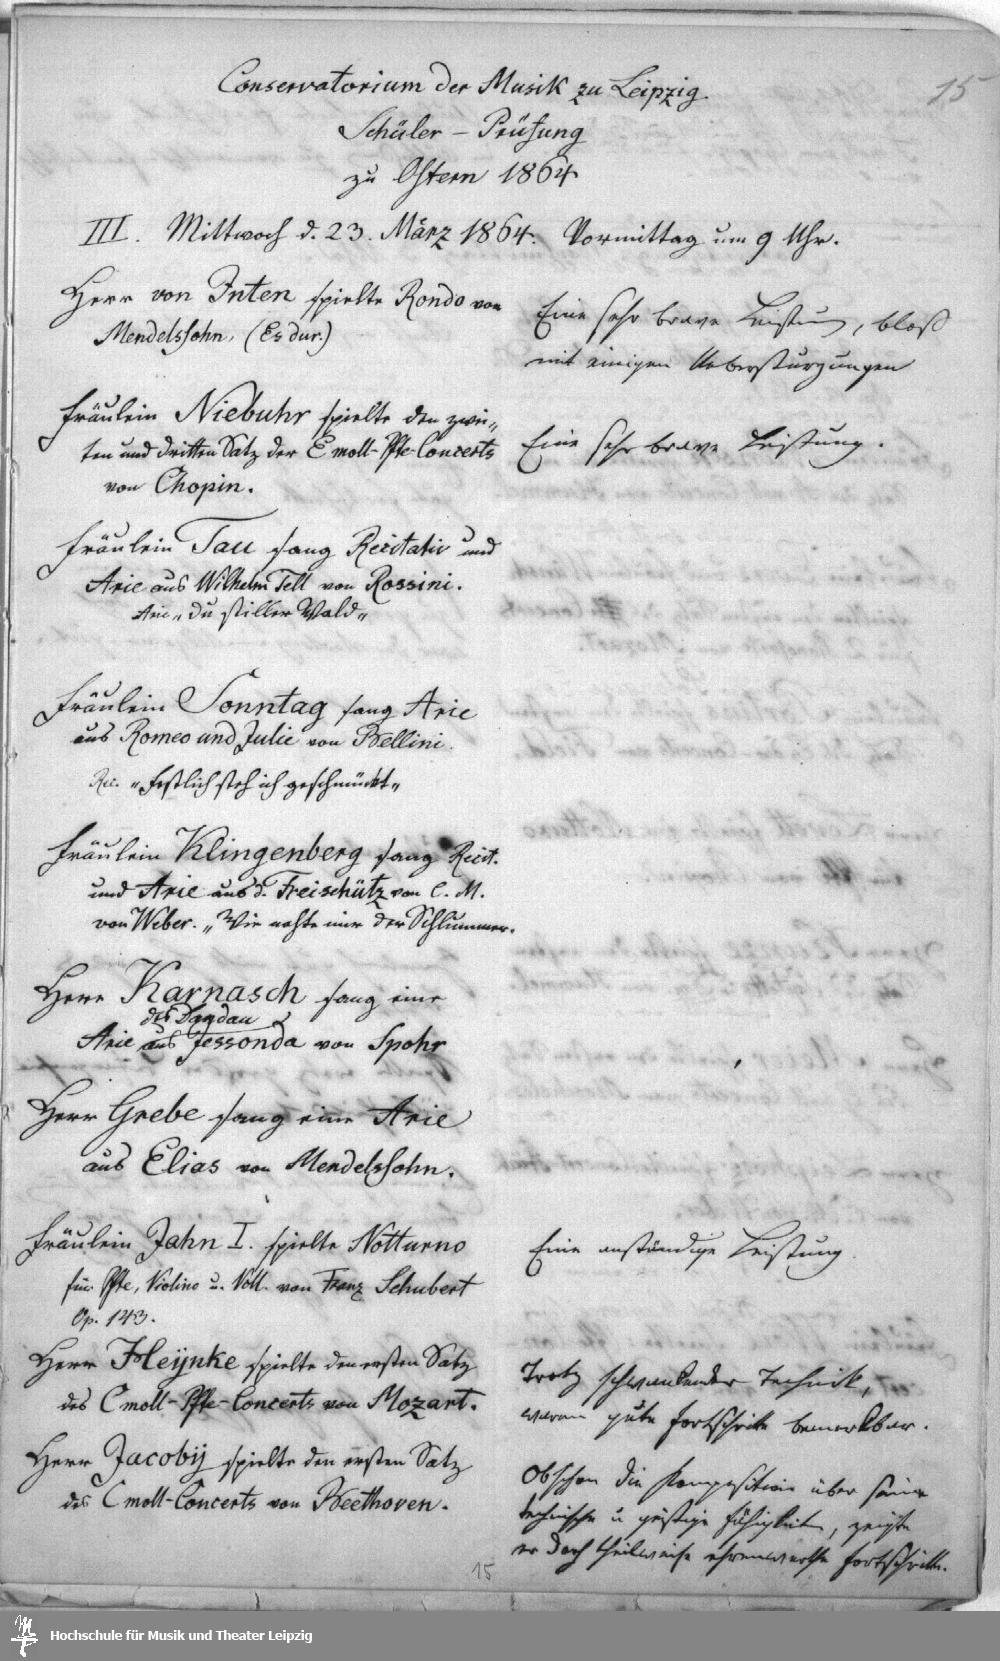 15
Conservatorium der Musik zu Leipzig.
Schüler - Prüfung
zu Ostern 1864
III. Mittwoch d. 23. März 1864. Vormittag um 9 Uhr.
Herr von Inten spielte Rondo von
Mendelssohn. (Es dur.)
Eine sehr brave Leistung, bloß
mit einigen Ueberstürzungen
Fräulein Niebuhr spielte den zwei„
ten und dritten Satz der E moll-Pfte-Concerts
von Chopin.
Eine sehr brave Leistung.
Fräulein Tau sang Recitativ und
Arie aus Wilhelm Tell von Rossini.
Arie „du stiller Wald„
Fräulein Sonntag sang Arie
aus Romeo und Julie von Bellini.
Rec. „Festlich steh ich geschmückt„
Fräulein Klingenberg sang Recit.
und Arie aus d. Freischütz von C. M.
von Weber. „Wie nahte mir der Schlummer.
Herr Karnasch sang eine
des Dandau
Arie aus Jessonda von Spohr
Herr Grebe sang eine Arie
aus Elias von Mendelssohn.
Fräulein Jahn I. spielte Notturno
für Pfte, Violine u. Vcll. von Franz Schubert
Op. 143.
Eine anständige Leistung.
Herr Heÿnke spielte den ersten Satz
des C moll-Pfte-Concerts von Mozart.
Trotz schwankender Technik,
waren gute Fortschritte bemerkbar.
Herr Jacobÿ spielte den ersten Satz
des C moll-Concerts von Beethoven.
Obschon die Komposition über seine
technische u geistige Fähigkeiten, zeigte
er doch theilweise ehrenwerthe Fortschritte.
15
Hochschule für Musik und Theater Leipzig